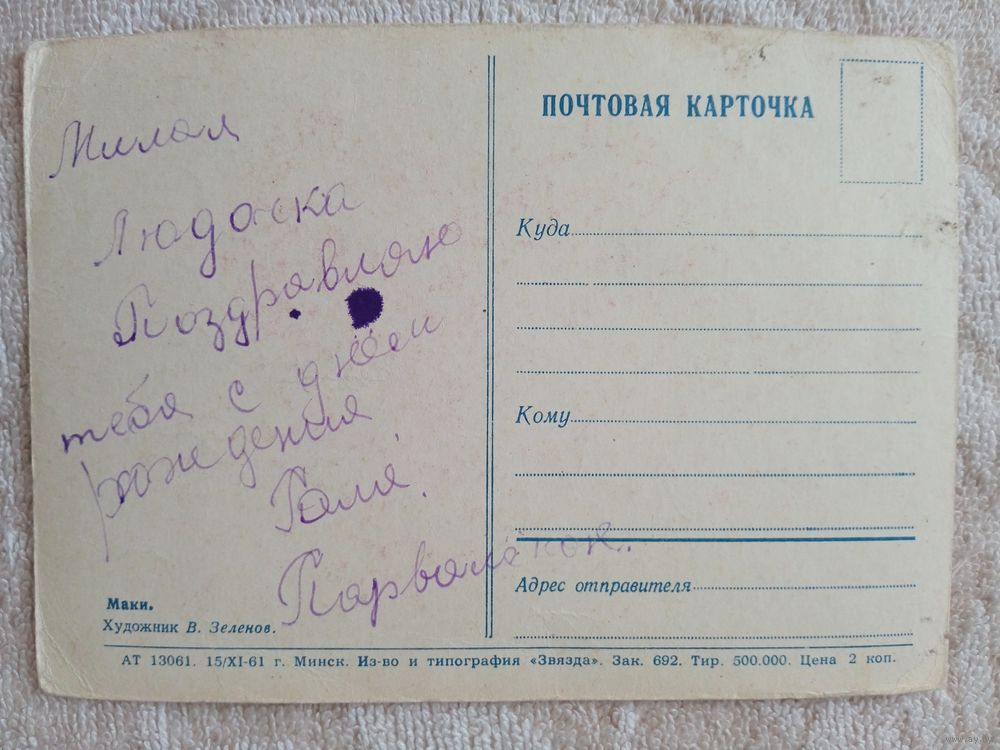 Милая
Людочка
Поздравляю
тебя с днём
рождения
Галя.
ПОЧТОВАЯ КАРТОЧКА
Куда
Кому
Адрес отправителя
Маки.
Художник В. Зеленов.
АТ 13061. 15/XI-61 г. Минск. Из-во и типография «Звязда». Зак. 692. Тир. 500.000. Цена 2 коп.
www.ay.by